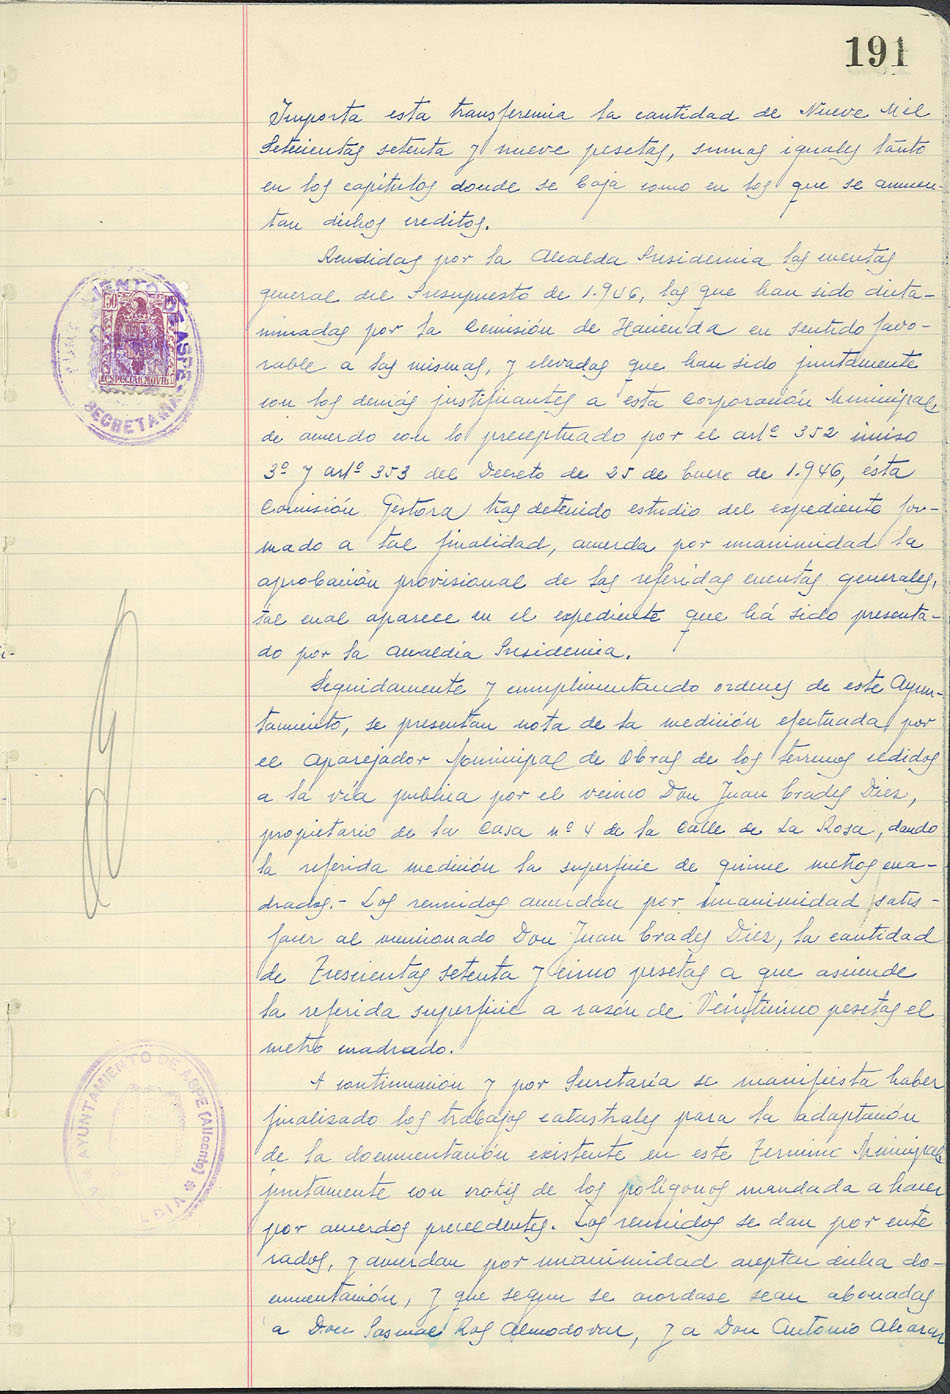 191
Importa esta transferencia la cantidad de Nueve Mil
Setecientas setenta y nueve pesetas, sumas iguales tanto
en los capítulos donde se baja como en los que se aumen-
tan dichos creditos.
Rendidas por la Alcaldia Presidencia las cuentas
general del Presupuesto de 1.946, las que han sido dicta-
minadas por la Comisión de Hacienda en sentido favo-
rable a las mismas, y elevadas que han sido juntamente
con los demás justificantes a esta Corporación Municipal,
de acuerdo con lo preceptuado por el artº 352 inciso
3º y artº 353 del Decreto de 25 de Enero de 1.946, ésta
Comisión Gestora tras detenido estudio del expediente for-
mado a tal finalidad, acuerda por unanimidad la
aprobación provisional de las referidas cuentas generales,
tal cual aparece en el expediente que há sido presenta-
do por la Alcaldia Presidencia.
Seguidamente y cumplimentando ordenes de este Ayun-
tamiento, se presentan nota de la medición efectuada por
el Aparejador Municipal de Obras de los terrenos cedidos
a la via publica por el vecino Don Juan Prades Diez,
propietario de la Casa nº 4 de la Calle de La Rosa, dando
la referida medición la superficie de quince metros cua-
drados.- Los reunidos acuerdan por unanimidad satis-
facer al mencionado Don Juan Prades Diez, la cantidad
de Trescientas setenta y cinco pesetas a que asciende
la referida superficie a razón de Veinticinco pesetas el
metro cuadrado.
A continuación y por Secretaría se manifiesta haber
finalizado los trabajos catastrales para la adaptación
de la documentación existente en este Termino Municipal
juntamente con crotis de los poligonos mandada a hacer
por acuerdos precedentes. Los reunidos se dan por ente
rados, y acuerdan por unanimidad aceptar dicha do-
cumentación, y que segun se acordase sean abonadas
a Don Pascual Ros Almodovar, y a Don Antonio Alcaraz
AYUNTAMIENTO DE ASPE
SECRETARIA
50
ESPECIAL MOVIL
AYUNTAMIENTO DE ASPE (Alicante)